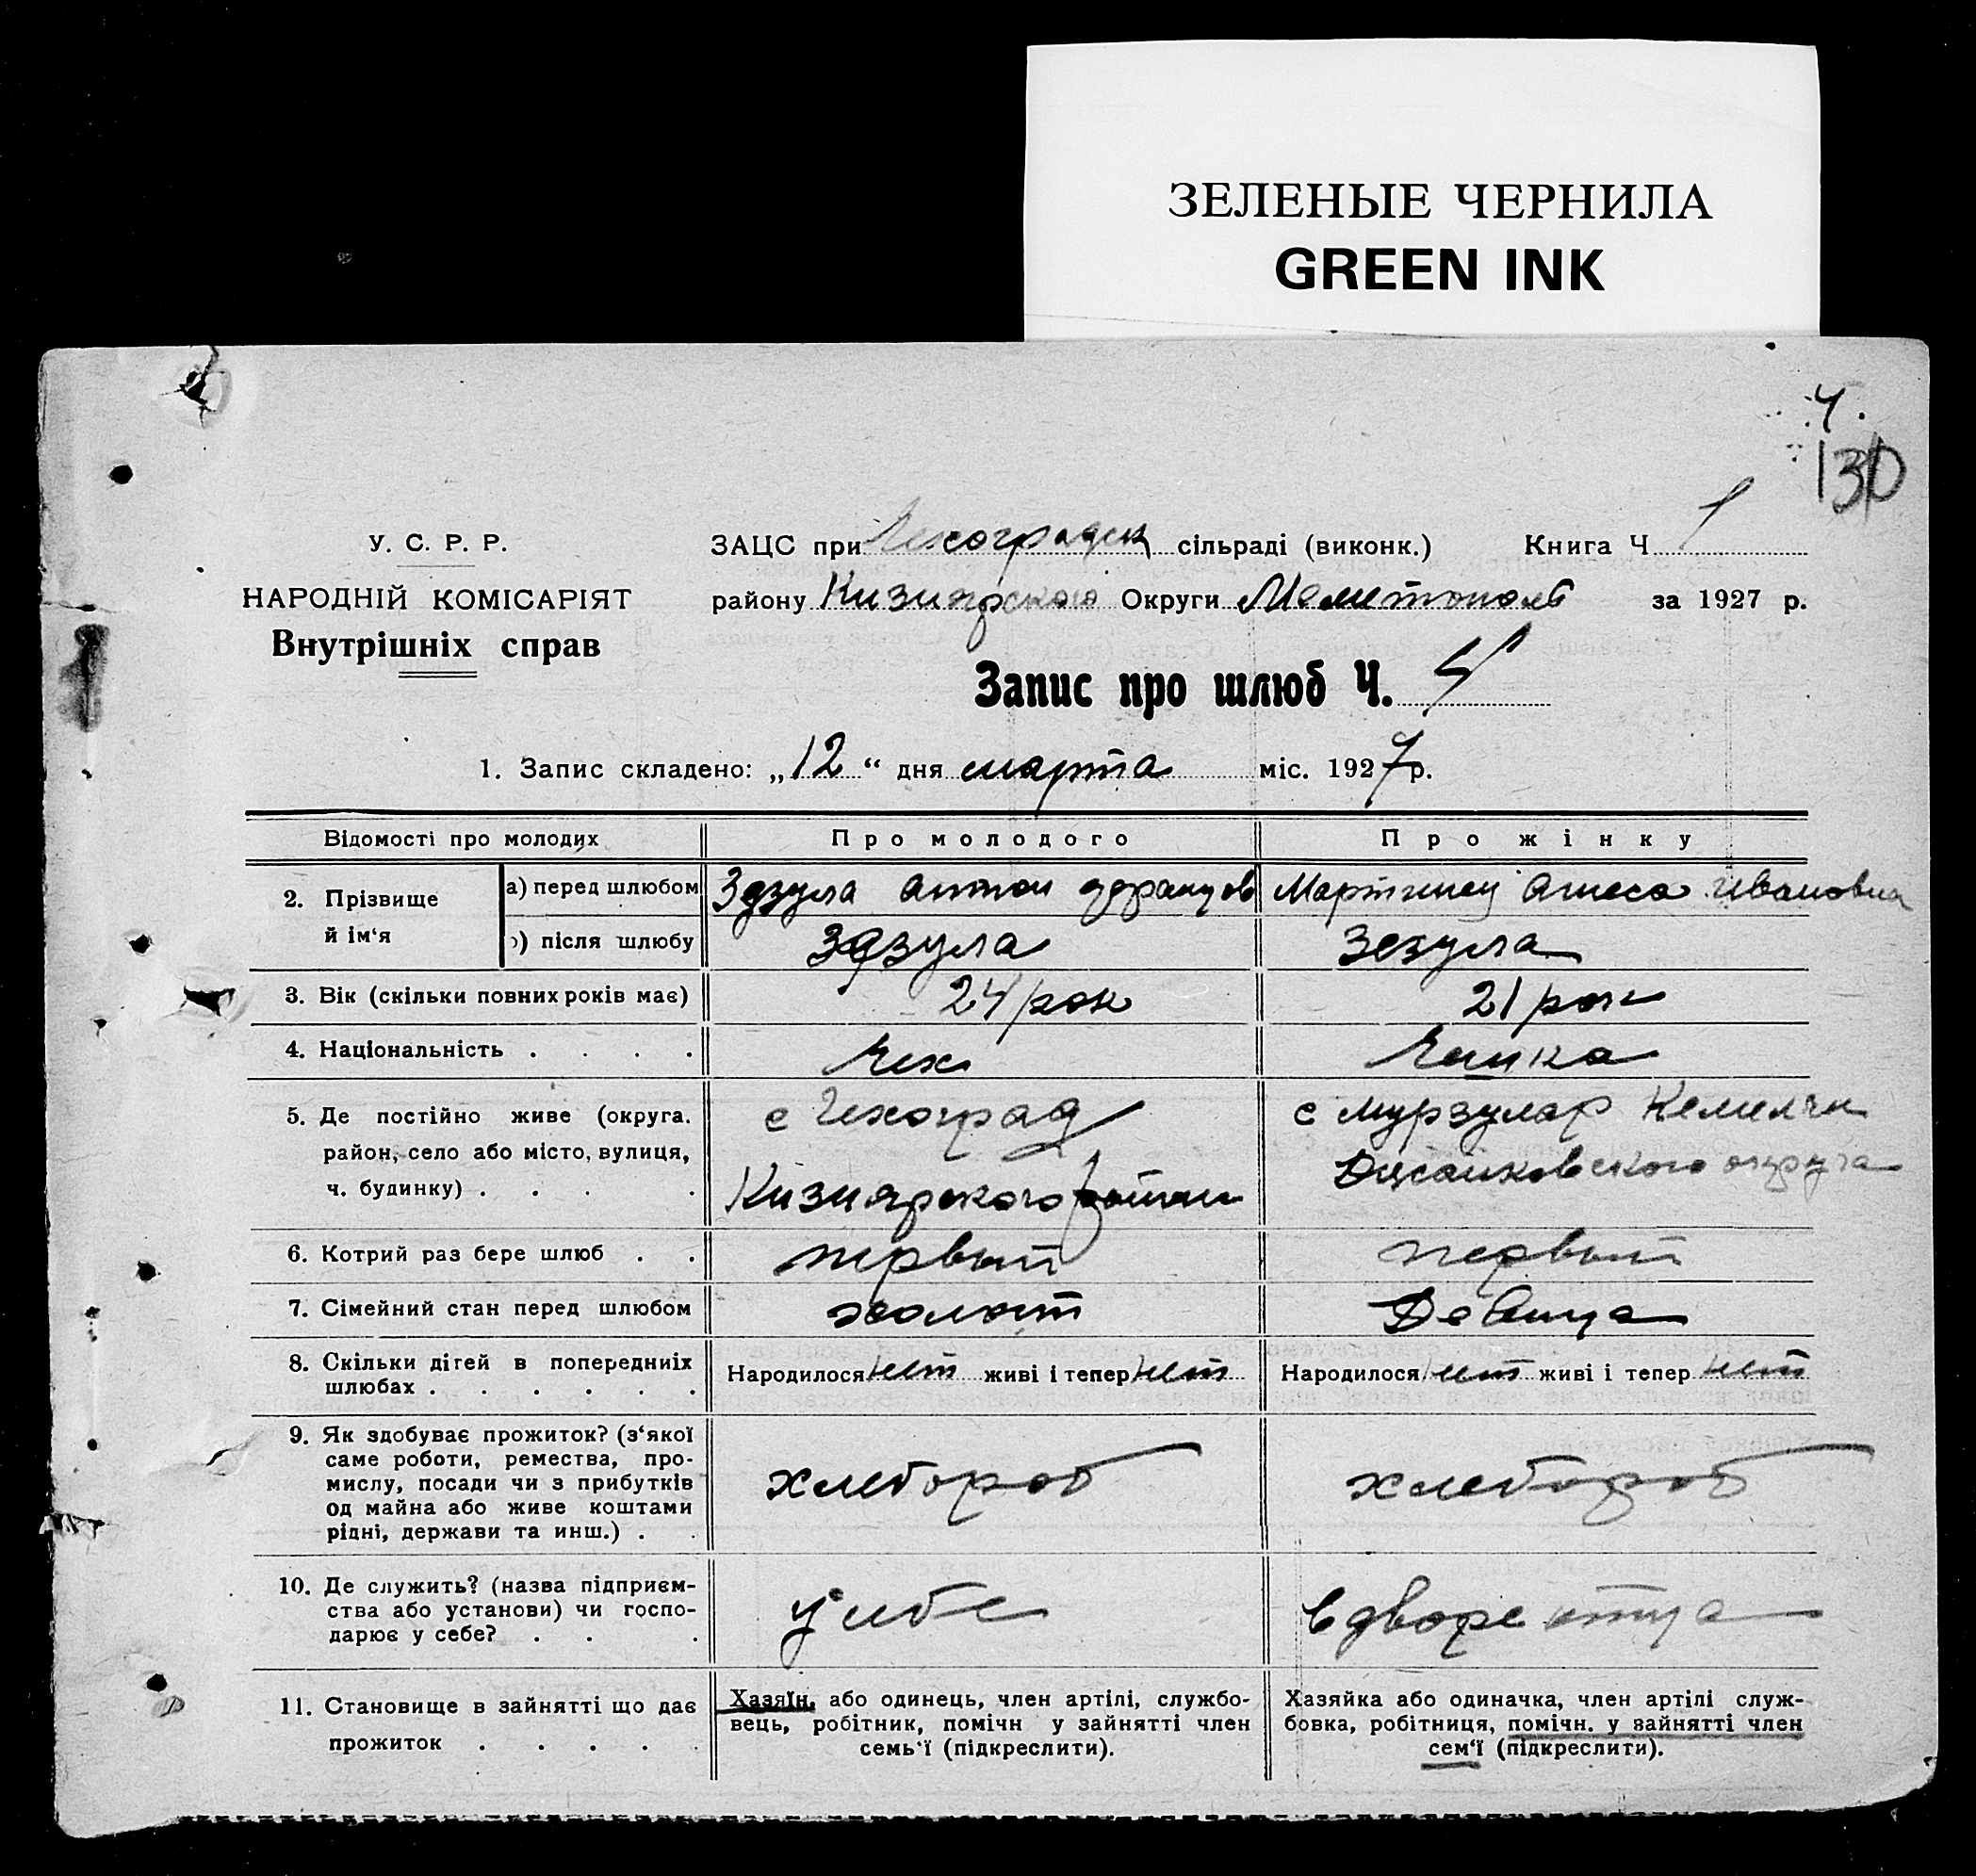 ЗЕЛЕНЫЕ ЧЕРНИЛА
GREEN INK
4.
130
У. С. Р. Р.
НАРОДНІЙ КОМІСАРІЯТ
Внутрішніх справ
ЗАЦС при Чехоградск сільраді (виконк.) Книга Ч 1
району Кизиярского Округи Мелитополь за 1927 р.
Запис про шлюб Ч. 4
1. Запис складено: „12“ дня марта міс. 1927 р.
Відомості про молодих Про молодого Про жінку
2. Прізвище й ім‘я
а) перед шлюбом Здзула Антон Францов Мартинец Агнеса Ивановна
б) після шлюбу Здзула Зезула
3. Вік (скільки повних років має) 24 рок 21 рок
4. Національність . . . . Чех Чешка
5. Де постійно живе (округа, район, село або місто, вулиця, ч. будинку) . . . .
с Чехоград
Кизиярского район
с Мурзулар Кемелчи
Джанковского округа
6. Котрий раз бере шлюб . . первый первый
7. Сімейний стан перед шлюбом холост Девица
8. Скільки дітей в попередніх
шлюбах . . . . . .
Народилося нет живі і тепер нет Народилося нет живі і тепер нет
9. Як здобуває прожиток? (з‘якої
саме роботи, ремества, про-
мислу, посади чи з прибутків
од майна або живе коштами
рідні, держави та инш.) . .
хлебороб хлебороб
10. Де служить? (назва підприєм-
ства або установи) чи госпо-
дарює у себе? . . .
у себе в дворе отца
11. Становище в зайнятті що дає
прожиток . . . . .
Хазяїн, або одинець, член артілі, службо-
вець, робітник, помічн у зайнятті член
семь‘ї (підкреслити).
Хазяйка або одиначка, член артілі служ-
бовка, робітниця, помічн. у зайнятті член
сем‘ї (підкреслити).